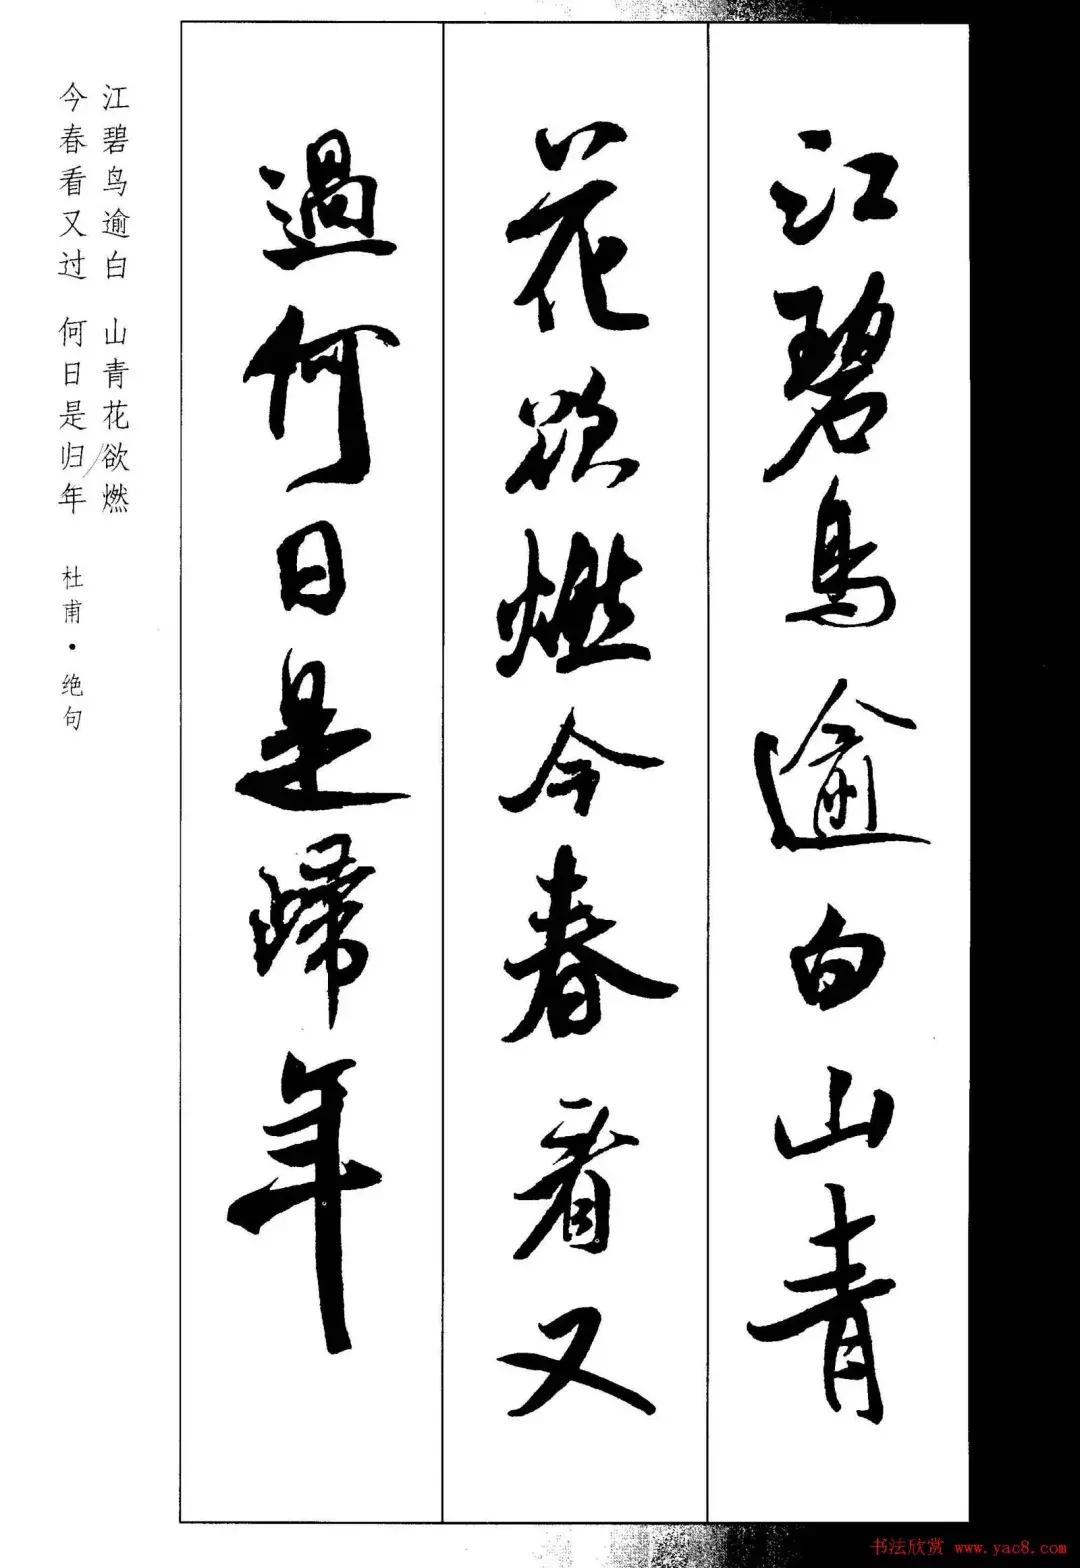 江碧鳥逾白山青
花欲燃今春看又
過何日是歸年
江碧鸟逾白 山青花欲燃
今春看又过 何日是归年 杜甫·绝句
书法欣赏 www.yac8.com